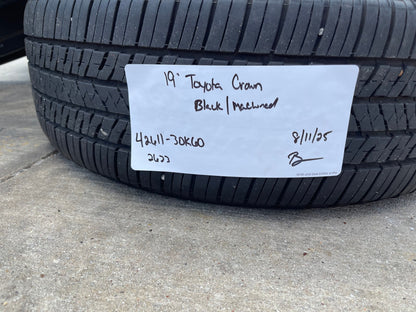 19" Toyota Crown
Black/Machined
42611-30K60
2623
8/11/25